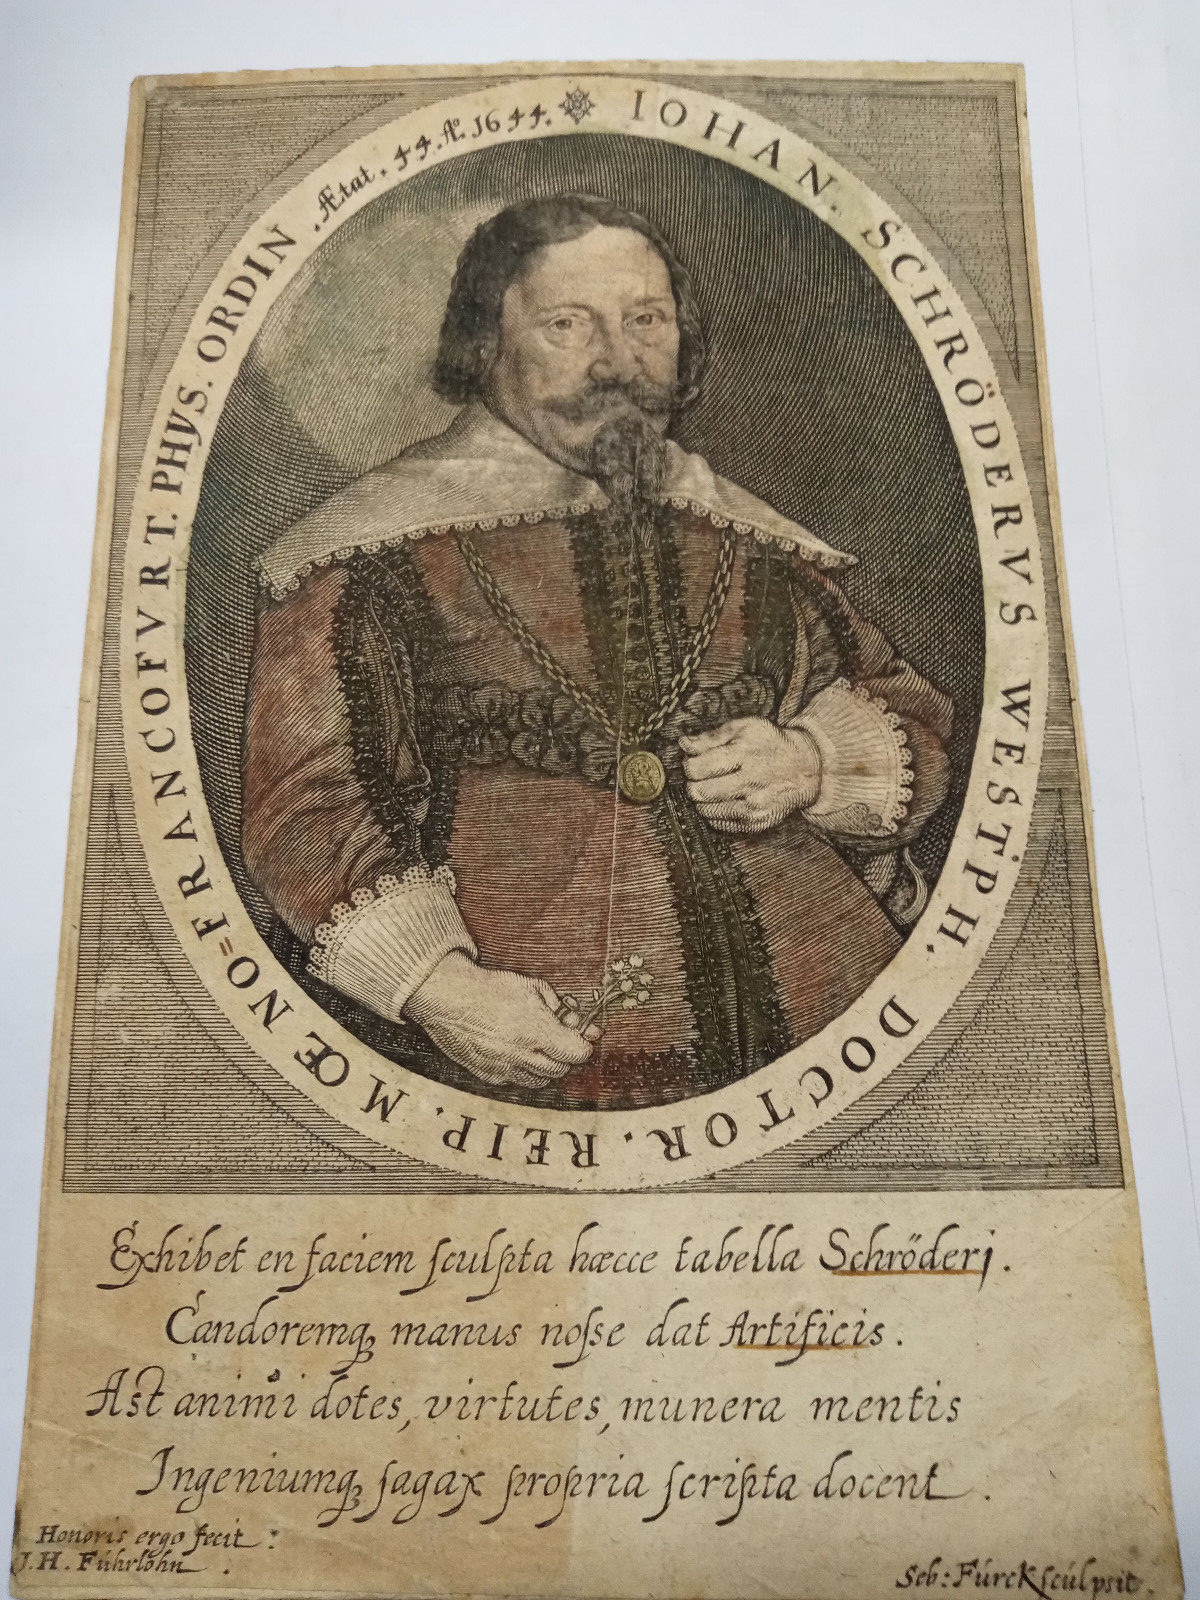 IOHAN. SCHRÖDERVS WESTPH. DOCTOR. REIP. MŒNO=FRANCOFVRT. PHYS. ORDIN. Ætat. 44. Aº. 1644.
Exhibet en faciem ſculpta hæcce tabella Schröderj.
Candoremqꝫ manus noſse dat Artificis.
Ast animi dotes, virtutes, munera mentis
Ingeniumqꝫ ſagax propria ſcripta docent.
Honoris ergo fecit:
J. H. Fúhrlohn.
Seb: Fúrck ſcúlpsit.